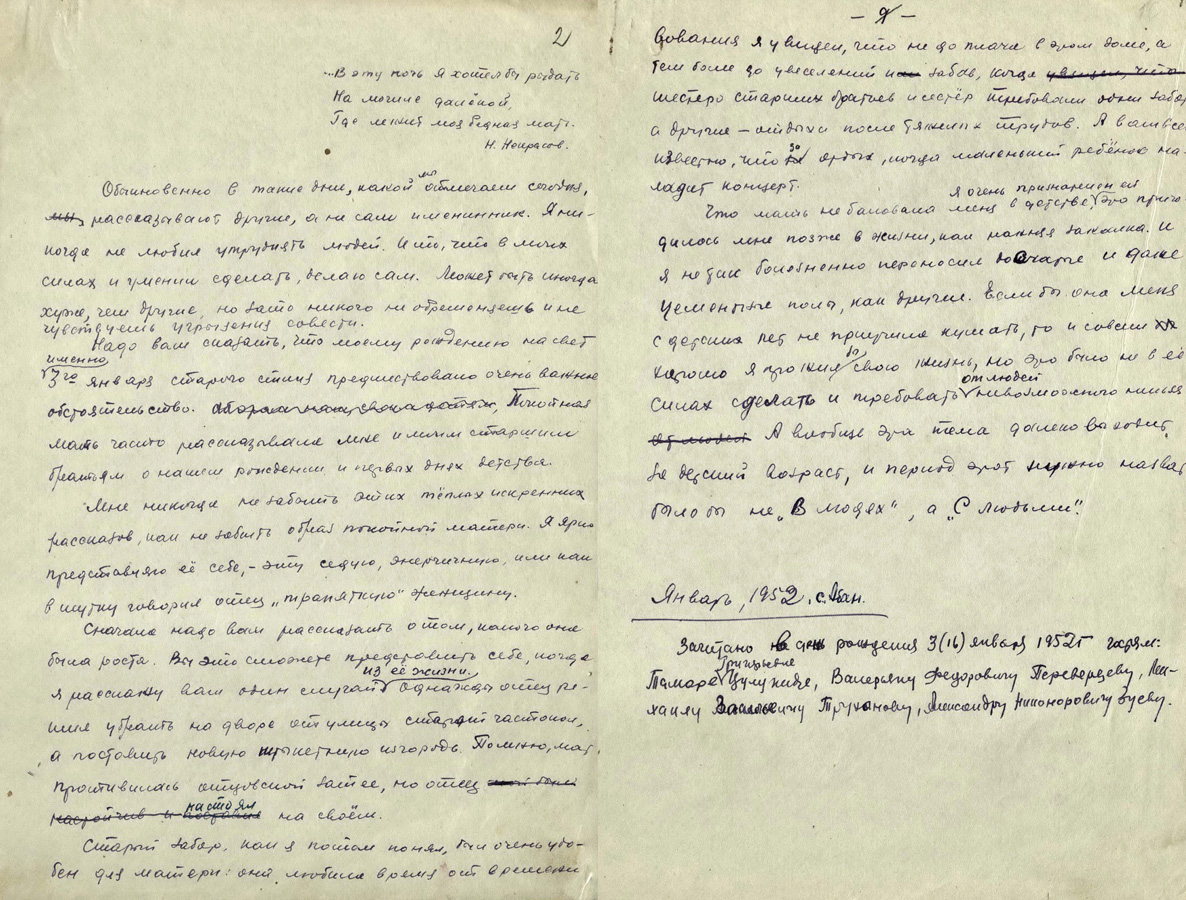 2
...В эту ночь я хотел бы рыдать
На могиле далёкой,
Где лежит моя бедная мать.
Н. Некрасов.
Обыкновенно в такие дни, какой мы отмечаем сегодня,
мы рассказывают другие, а не сам именинник. Я ни-
когда не любил утруждать людей. И то, что в моих
силах и умении сделать, делаю сам. Может быть иногда
хуже, чем другие, но зато никого не обременяешь и не
чувствуешь угрызения совести.
Надо вам сказать, что моему рождению на свет
именно
3го января старого стиля предшествовало очень важное
обстоятельство. Покойная
мать часто рассказывала мне и моим старшим
братьям о нашем рождении и первых днях детства.
Мне никогда не забыть этих тёплых искренних
рассказов, как не забыть образ покойной матери. Я ярко
представляю её себе, – эту седую, энергичную, или как
в шутку говорил отец „трапяткую" женщину.
Сначала надо вам рассказать о том, какого она
была роста. Вы это сможете представить себе, когда
из её жизни.
я расскажу вам один случай Однажды отец ре-
шил убрать на дворе от улицы старый частокол,
а поставить новую штыкетную изгородь. Помню, мать
противилась отцовской затее, но отец мой был
настоял
настойчив и поставил на своём.
Старый забор, как я потом понял, был очень удо-
бен для матери: она любила время от времени
– 9 –
бования я увидел, что не до плача в этом доме, а
тем более до увеселений и забав, когда увидел, что
шестеро старших братьев и сестёр требовали одни забот,
а другие – отдыха после тяжелых трудов. А вам всем
известно, что за отдых, когда маленький ребёнок на-
ладит концерт.
я очень признателен ей
Что мать не баловала меня в детстве, это приго-
дилось мне позже в жизни, как нужная закалка. И
я не так болезненно переносил дощатые и даже
цементные полы, как другие. Если бы она меня
с детских лет не приучила кушать, то и совсем
хорошо я прожил бы свою жизнь, но это было не в её
от людей
силах сделать и требовать невозможного нельзя
от людей А вообще эта тема далеко выходит
за детский возраст, и период этот нужно назвать
было бы не „В людях", а „С людьми".
Январь, 1952. с. Абан.
Зачитано в день рождения 3(16) января 1952 г
Григорьевне
Тамаре Цулукидзе, Валерьяну Федоровичу Переверзеву, Ми-
хаилу Васильевичу Труханову, Александру Никоноровичу Зуеву.